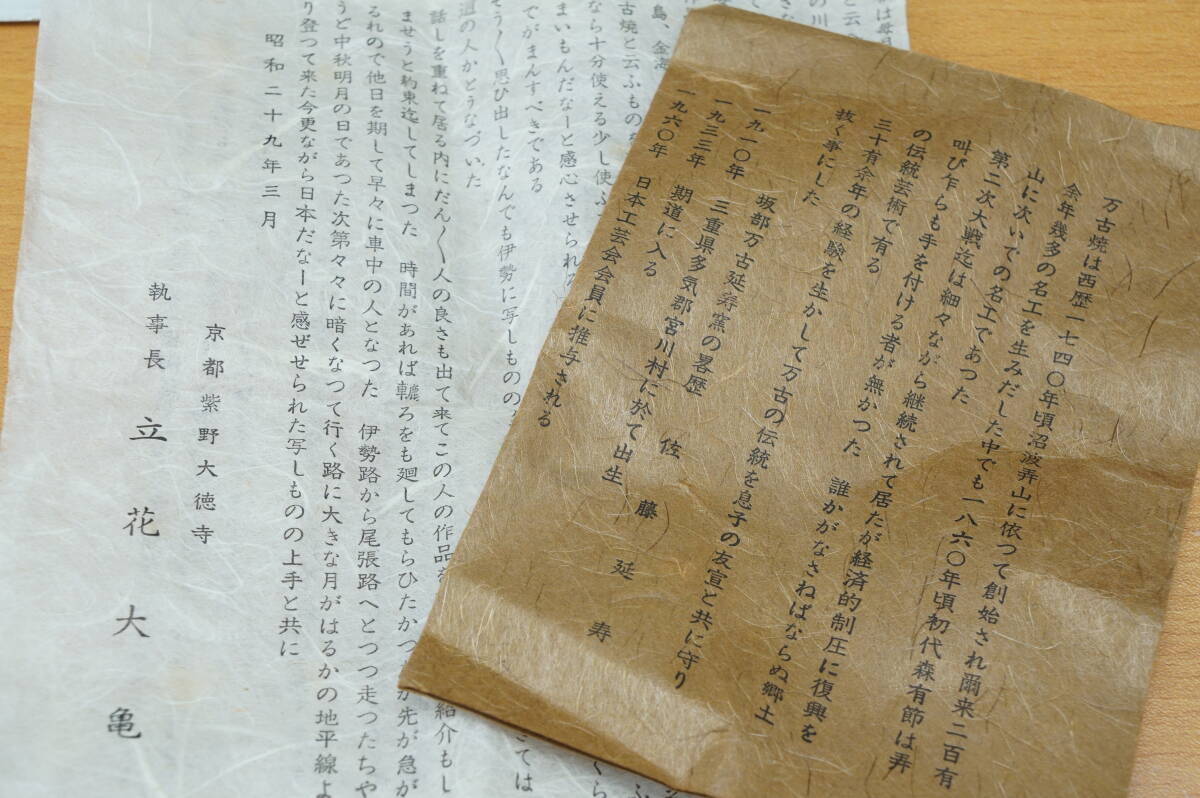 万古焼は西歴一七四〇年頃沼波弄山に依つて創始され爾来二百有
余年幾多の名工を生みだした中でも一八六〇年頃初代森有節は弄
山に次いでの名工であつた
第二次大戦迄は細々ながら継続されて居たが経済的制圧に復興を
叫び乍らも手を付ける者が無かつた　誰かがなさねばならぬ郷土
の伝統芸術で有る
三十有余年の経験を生かして万古の伝統を息子の友宣と共に守り
抜く事にした
坂部万古延寿窯の畧歴
佐藤延寿
一九一〇年　三重県多気郡宮川村に於て出生
一九三三年　期道に入る
一九六〇年　日本工芸会会員に推与される
島、金海
古焼と云ふもの
なら十分使える少し使ふ
まいもんだなーと感心させられる
でがまんすべきである
そう〳〵思ひ出したなんでも伊勢に写しものの
道の人かとうなづいた
話しを重ねて居る内にだん〳〵人の良さも出て来てこの人の作品を
紹介もし
ませうと約束迄してしまつた　時間があれば轆ろをも廻してもらひたかつ
が先が急が
るれので他日を期して早々に車中の人となつた　伊勢路から尾張路へとつつ走つたちや
うど中秋明月の日であつた次第々々に暗くなつて行く路に大きな月がはるかの地平線よ
り登つて来た今更ながら日本だなーと感ぜせられた写しものの上手と共に
昭和二十九年三月
京都紫野大徳寺
執事長　立花大亀